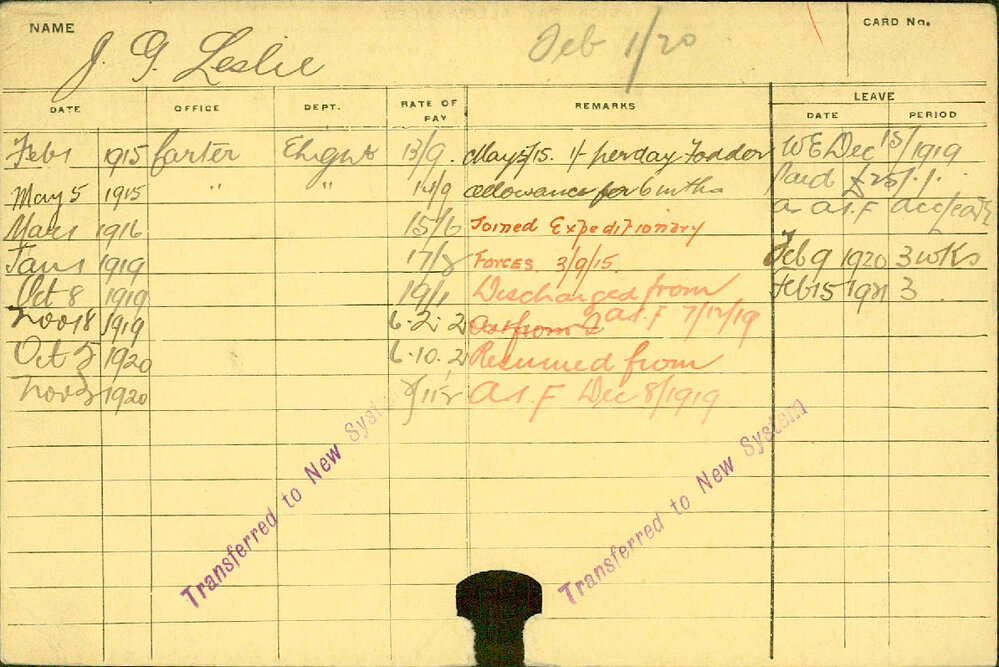 NAME J. G. Leslie Feb 1/20 CARD No.
DATE OFFICE DEPT. RATE OF PAY REMARKS LEAVE
DATE PERIOD
Feb 1 1915 Carter 13/9. May 5/15. 1/- per day Fodder WE Dec 15/1919
May 5 1915 " " 14/9 allowance for 6 mths Paid £25/./.
1916 15/6 Joined Expeditionary as A.I.F
Jan 1 1919 Forces. 3/9/15. Feb 9 1920 3 wks
Oct 8 1919 19/1 Discharged from Feb 15 1921 3
Nov 18 1919 6.2. As from A.I.F 7/12/19
Oct 5 1920 6.10. Resumed from
Nov 1920 A.I.F Dec 8/1919
Transferred to New System
Transferred to New System